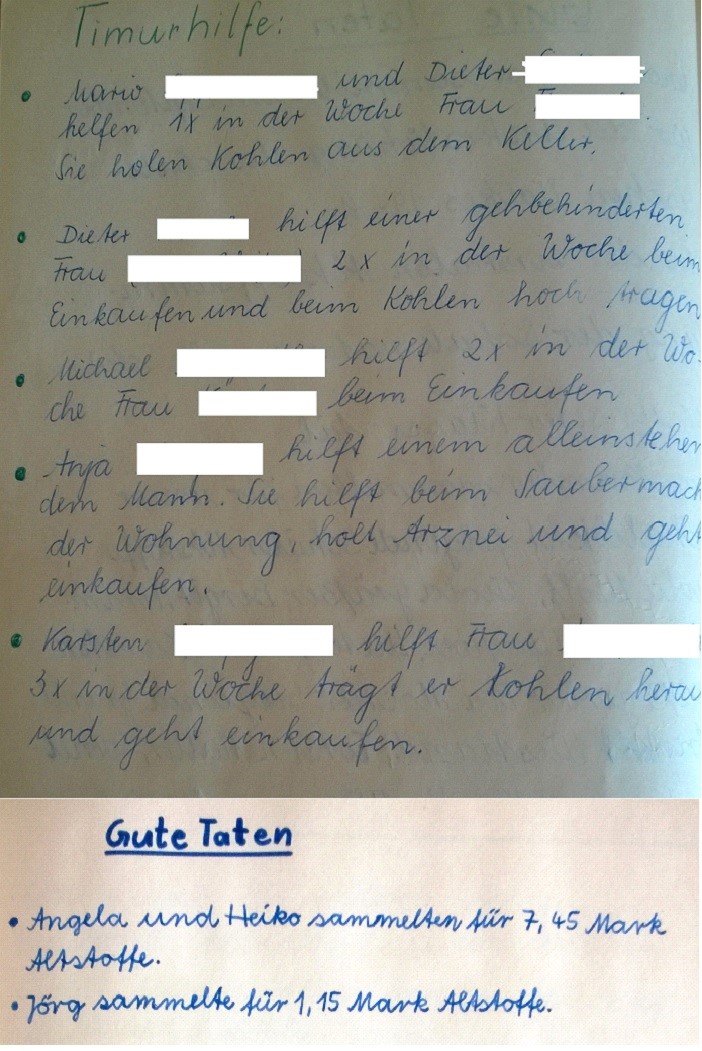 Timurhilfe:
• Mario und Dieter
helfen 1x in der Woche Frau .
Sie holen Kohlen aus dem Keller.
• Dieter hilft einer gehbehinderten
Frau 2x in der Woche beim
Einkaufen und beim Kohlen hoch tragen
• Michael hilft 2x in der Wo-
che Frau beim Einkaufen
• Anja hilft einem alleinstehen
dem Mann. Sie hilft beim Saubermach
der Wohnung, holt Arznei und geht
einkaufen.
• Karsten hilft Frau
3x in der Woche trägt er Kohlen herau
und geht einkaufen.
Gute Taten
• Angela und Heiko sammelten für 7,45 Mark
Altstoffe.
• Jörg sammelte für 1,15 Mark Altstoffe.